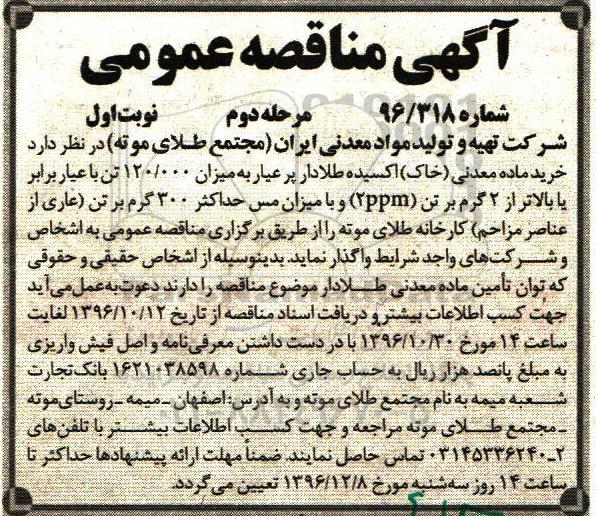 آگهی مناقصه عمومی
شماره ۹۶/۳۱۸ مرحله دوم نوبت اول
شرکت تهیه و تولید مواد معدنی ایران (مجتمع طلای موته) در نظر دارد
خرید ماده معدنی (خاک) اکسیده طلادار پر عیار به میزان ۱۲۰/۰۰۰ تن با عیار برابر
یا بالاتر از ۲ گرم بر تن (۲ppm) و با میزان مس حداکثر ۳۰۰ گرم بر تن (عاری از
عناصر مزاحم) کارخانه طلای موته را از طریق برگزاری مناقصه عمومی به اشخاص
و شرکت‌های واجد شرایط واگذار نماید. بدینوسیله از اشخاص حقیقی و حقوقی
که توان تأمین ماده معدنی طلادار موضوع مناقصه را دارند دعوت به‌عمل می‌آید
جهت کسب اطلاعات بیشتر و دریافت اسناد مناقصه از تاریخ ۱۳۹۶/۱۰/۱۲ لغایت
ساعت ۱۴ مورخ ۱۳۹۶/۱۰/۳۰ با در دست داشتن معرفی‌نامه و اصل فیش واریزی
به مبلغ پانصد هزار ریال به حساب جاری شماره ۱۶۲۱۰۳۸۵۹۸ بانک تجارت
شعبه میمه به نام مجتمع طلای موته و به آدرس: اصفهان ـ میمه ـ روستای موته
ـ مجتمع طلای موته مراجعه و جهت کسب اطلاعات بیشتر با تلفن‌های
۲ـ۰۳۱۴۵۳۳۶۲۴۰ تماس حاصل نمایند. ضمناً مهلت ارائه پیشنهادها حداکثر تا
ساعت ۱۴ روز سه‌شنبه مورخ ۱۳۹۶/۱۲/۸ تعیین می‌گردد.